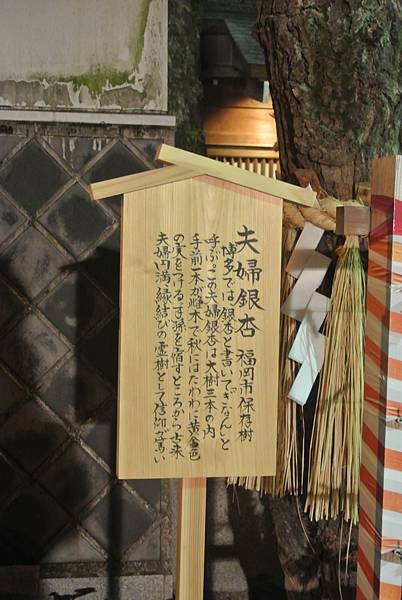 夫婦銀杏 福岡市保存樹
博多では、銀杏と書いて「ぎなん」と
呼ぶ。この夫婦銀杏は大樹三本の内
手前一本が雌木で秋にはたわわに黄金色
の実をつける。子孫を宿すところから古来
夫婦円満、縁結びの霊樹として信仰が篤い